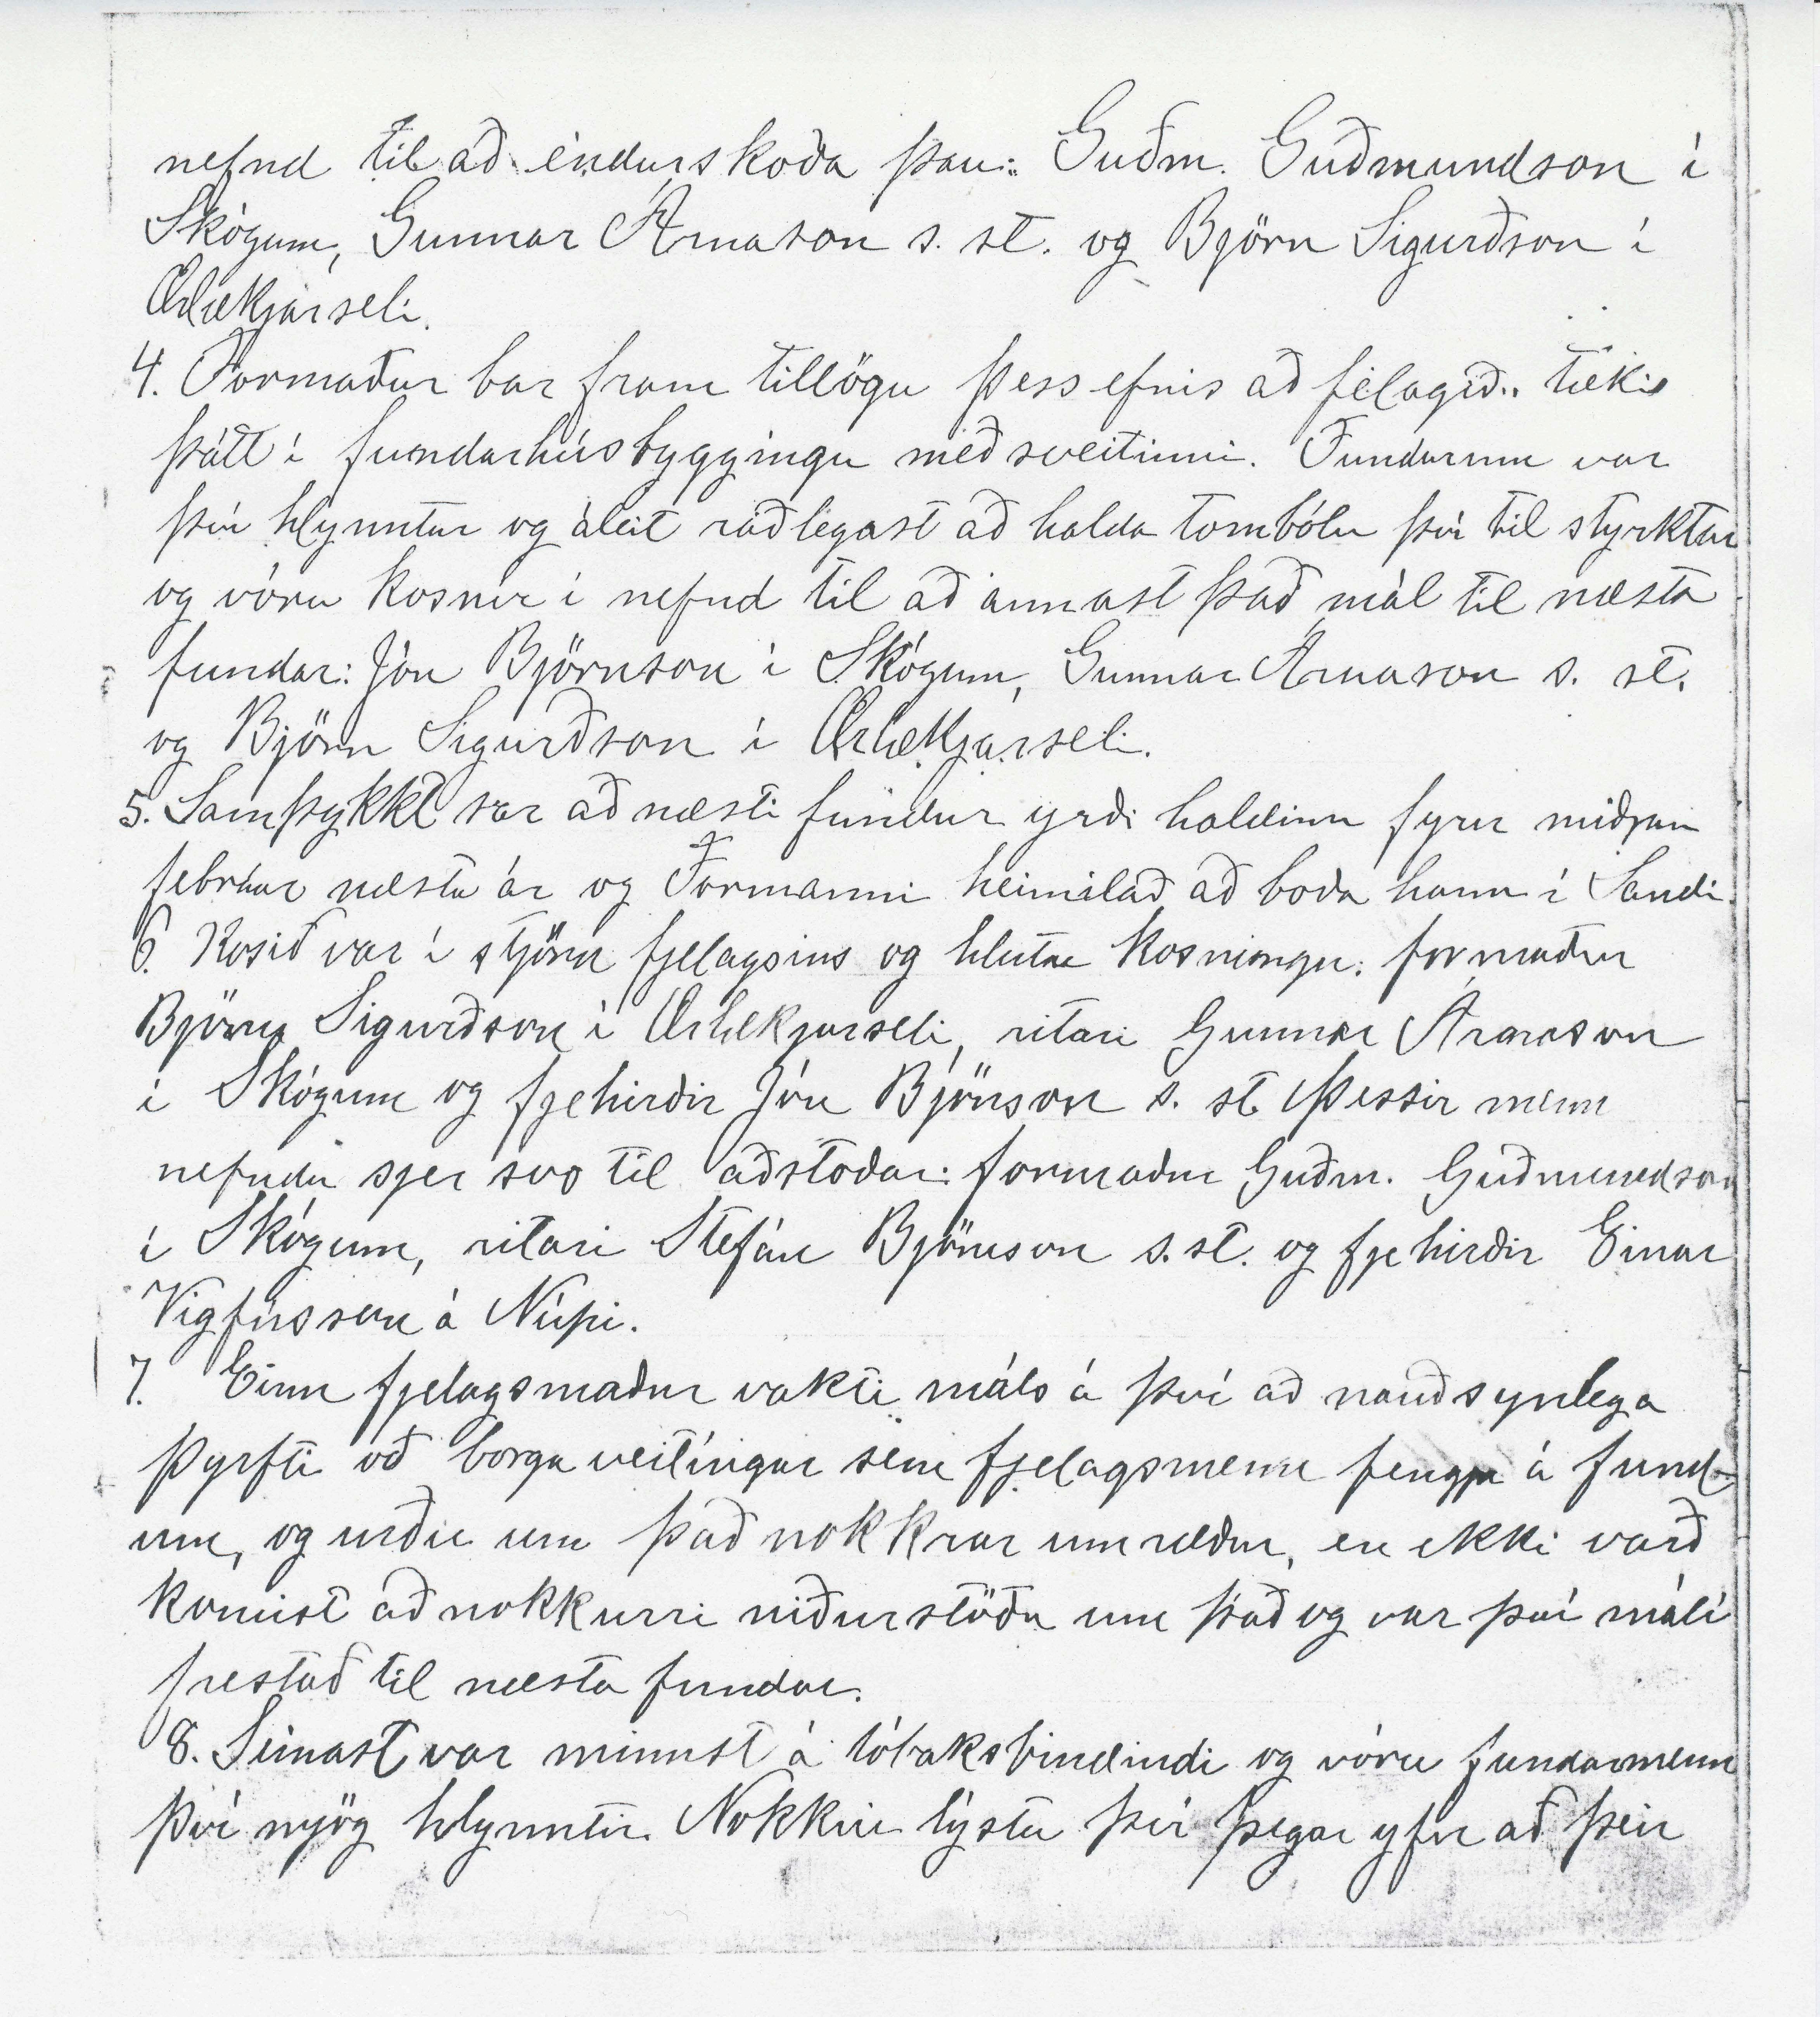 nefnd til að endurskoða þau: Guðm. Guðmundson í
Skógum, Gunnar Árnason s. st. og Björn Sigurðson í
Ærlækjarseli.
4. Formaður bar fram tillögu þess efnis að félagið tæki
þátt í fundarhúsbyggingu með sveitinni. Fundurinn var
því hlynntur og áleit ráðlegast að halda tombólu því til styrktar
og vóru kosnir í nefnd til að annast það mál til næsta
fundar: Jón Björnson í Skógum, Gunnar Árnason s. st.
og Björn Sigurðson í Ærlækjarseli.
5. Samþykkt var að næsti fundur yrði haldinn fyrir miðjan
febrúar næsta ár og Formanni heimilað að boða hann í Sandi.
6. Kosið var í stjórn fjelagsins og hlutu kosningu: formaður
Björn Sigurðson í Ærlækjarseli, ritari Gunnar Árnason
í Skógum og fjehirðir Jón Björnson s. st. Þessir menn
nefndu sjer svo til aðstoðar: formaður Guðm. Guðmundson
í Skógum, ritari Stefán Björnson s. st. og fjehirðir Einar
Vigfússon á Núpi.
7. Einn fjelagsmaður vakti máls á því að nauðsynlega
þyrfti að borga veitíngar sem fjelagsmenn fengju á fund-
um, og urðu um það nokkrar umræður, en ekki varð
komist að nokkurri niðurstöðu um það og var því máli
frestað til næsta fundar.
8. Seinast var minnst á tóbaksbindindi og vóru fundarmenn
því mjög hlynntir. Nokkrir lýstu því þegar yfir að þeir